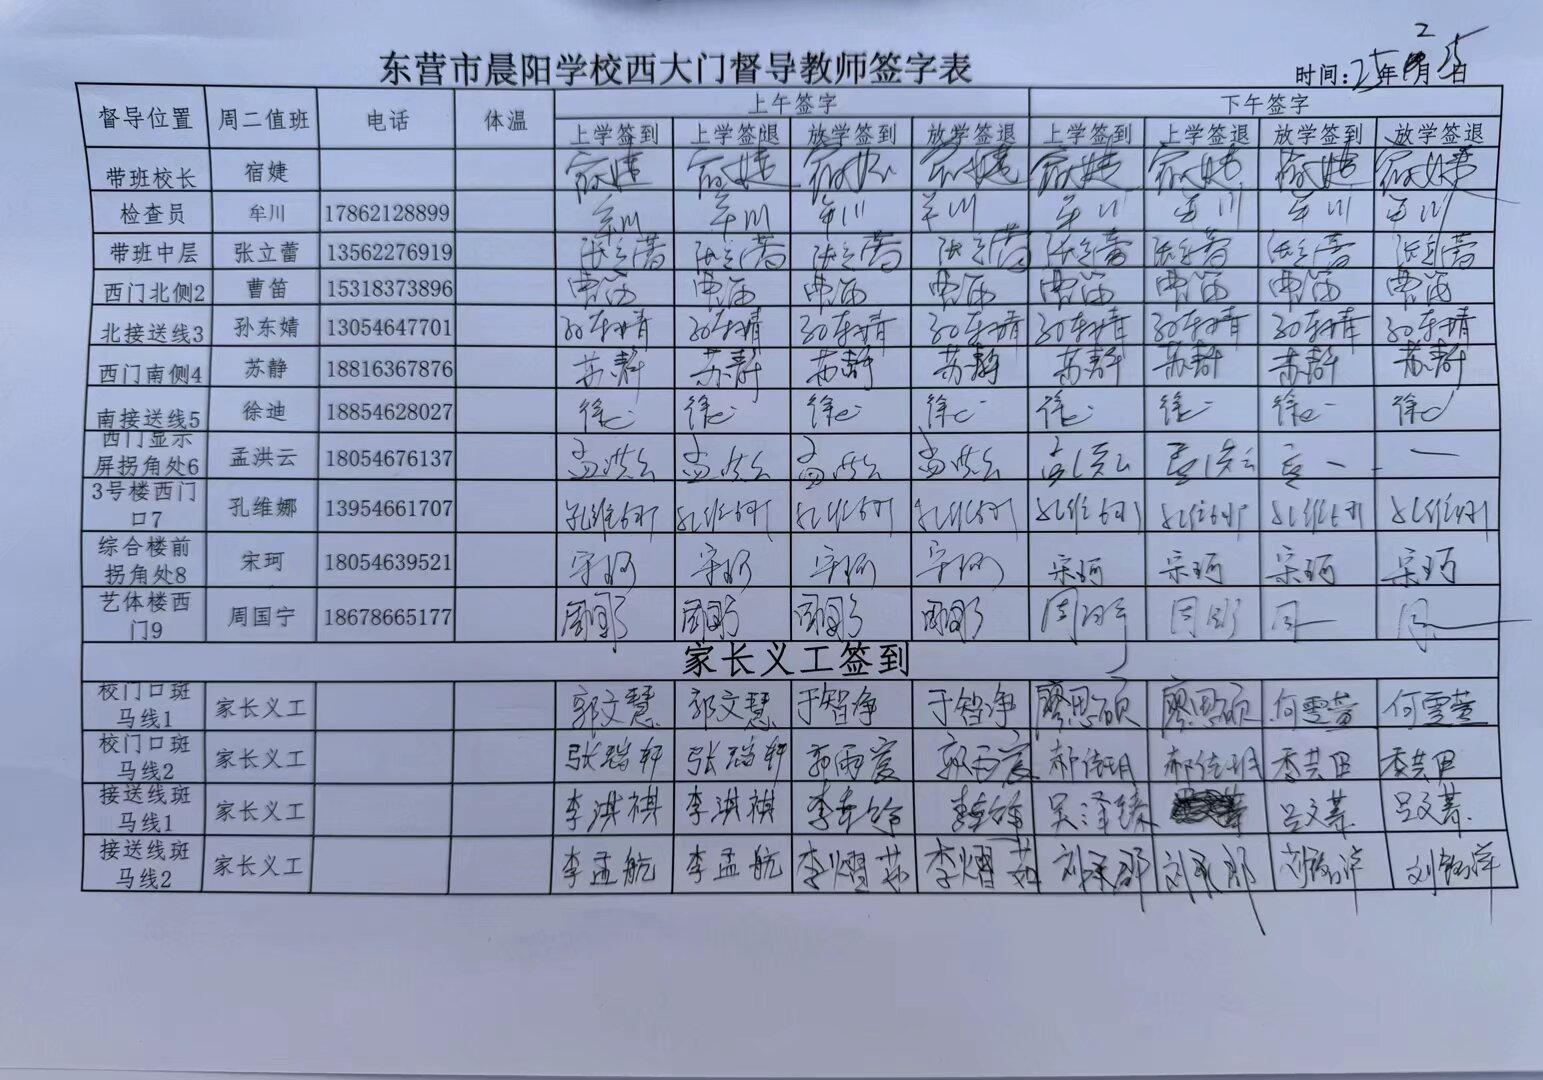 东营市晨阳学校西大门督导教师签字表
时间:25年2月25日
督导位置 周二值班 电话 体温 上午签字 下午签字
上学签到 上学签退 放学签到 放学签退 上学签到 上学签退 放学签到 放学签退
带班校长 宿婕 宿婕 宿婕 宿婕 宿婕 宿婕 宿婕 宿婕 宿婕
检查员 牟川 17862128899 牟川 牟川 牟川 牟川 牟川 牟川 牟川 牟川
带班中层 张立蕾 13562276919 张立蕾 张立蕾 张立蕾 张立蕾 张立蕾 张立蕾 张立蕾 张立蕾
西门北侧2 曹笛 15318373896 曹笛 曹笛 曹笛 曹笛 曹笛 曹笛 曹笛 曹笛
北接送线3 孙东婧 13054647701 孙东婧 孙东婧 孙东婧 孙东婧 孙东婧 孙东婧 孙东婧 孙东婧
西门南侧4 苏静 18816367876 苏静 苏静 苏静 苏静 苏静 苏静 苏静 苏静
南接送线5 徐迪 18854628027 徐迪 徐迪 徐迪 徐迪 徐迪 徐迪 徐迪 徐迪
西门显示
屏拐角处6 孟洪云 18054676137 孟洪云 孟洪云 孟洪云 孟洪云 孟洪云 孟洪云 孟
3号楼西门
口7 孔维娜 13954661707 孔维娜 孔维娜 孔维娜 孔维娜 孔维娜 孔维娜 孔维娜 孔维娜
综合楼前
拐角处8 宋珂 18054639521 宋珂 宋珂 宋珂 宋珂 宋珂 宋珂 宋珂 宋珂
艺体楼西
门9 周国宁 18678665177 周国宁 周国宁 周国宁 周国宁 周国宁 周国宁 周 周
家长义工签到
校门口斑
马线1 家长义工 郭文慧 郭文慧 于智净 于智净 廖思硕 廖思硕 何雯萱 何雯萱
校门口斑
马线2 家长义工 张瑞轩 张瑞轩 郭雨宸 郭雨宸 郝佳玥 郝佳玥
接送线斑
马线1 家长义工 李淇祺 李淇祺 吴泽臻 吕文菁 吕文菁
接送线斑
马线2 家长义工 李孟航 李孟航 李熠茹 李熠茹 刘承郡 刘承郡